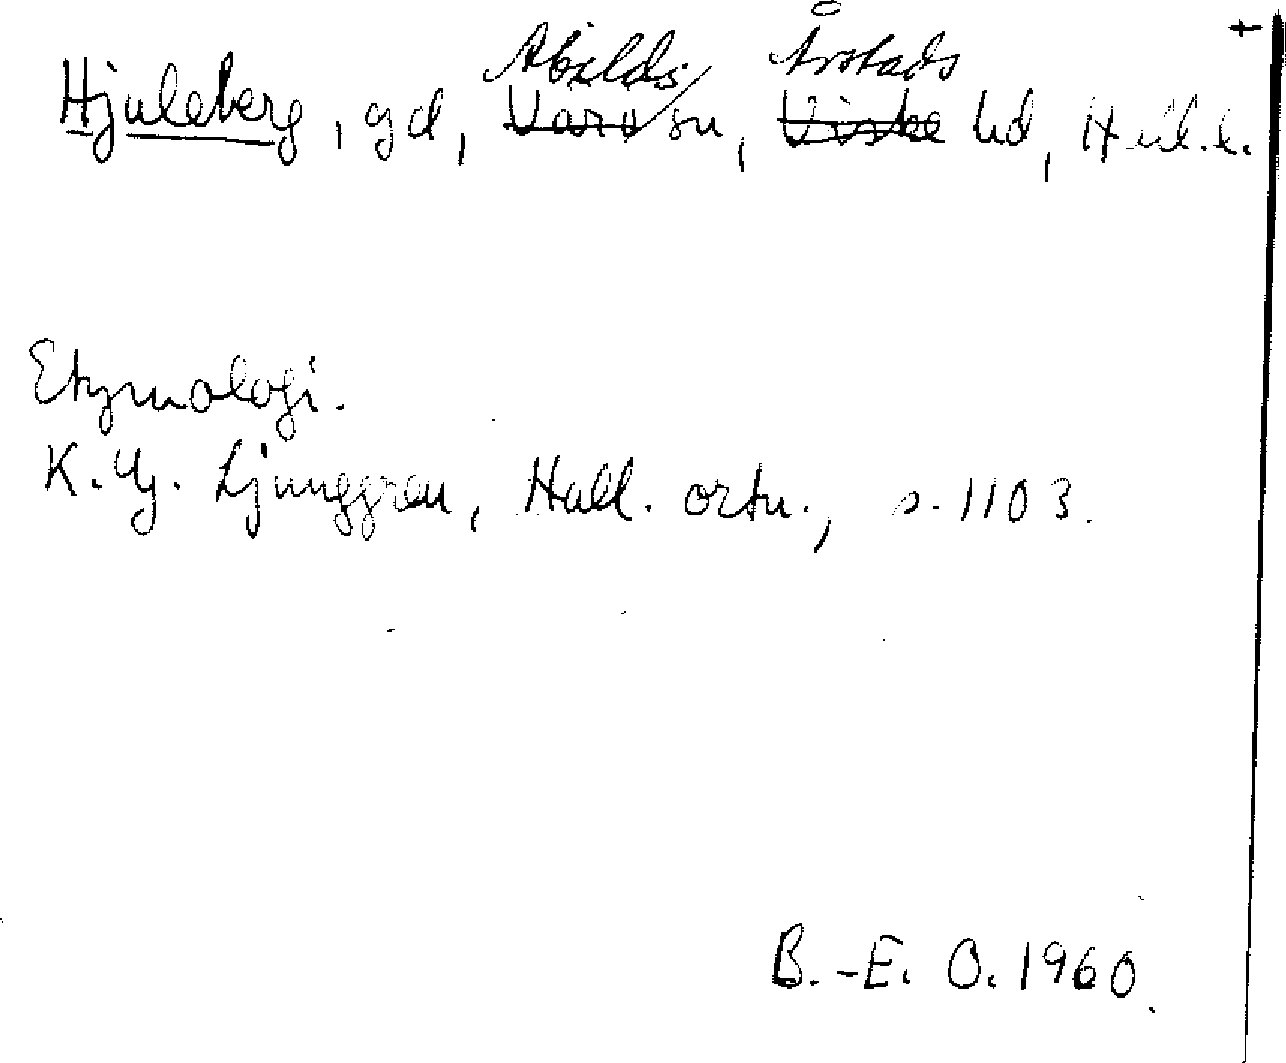 +
Abilds Årstads
Hjuleberg, gd, Varö sn, Viske hd, Hall.l.
Etymologi.
K.G. Ljunggren, Hall. ortn., s. 1103.
B.-E. O. 1960.